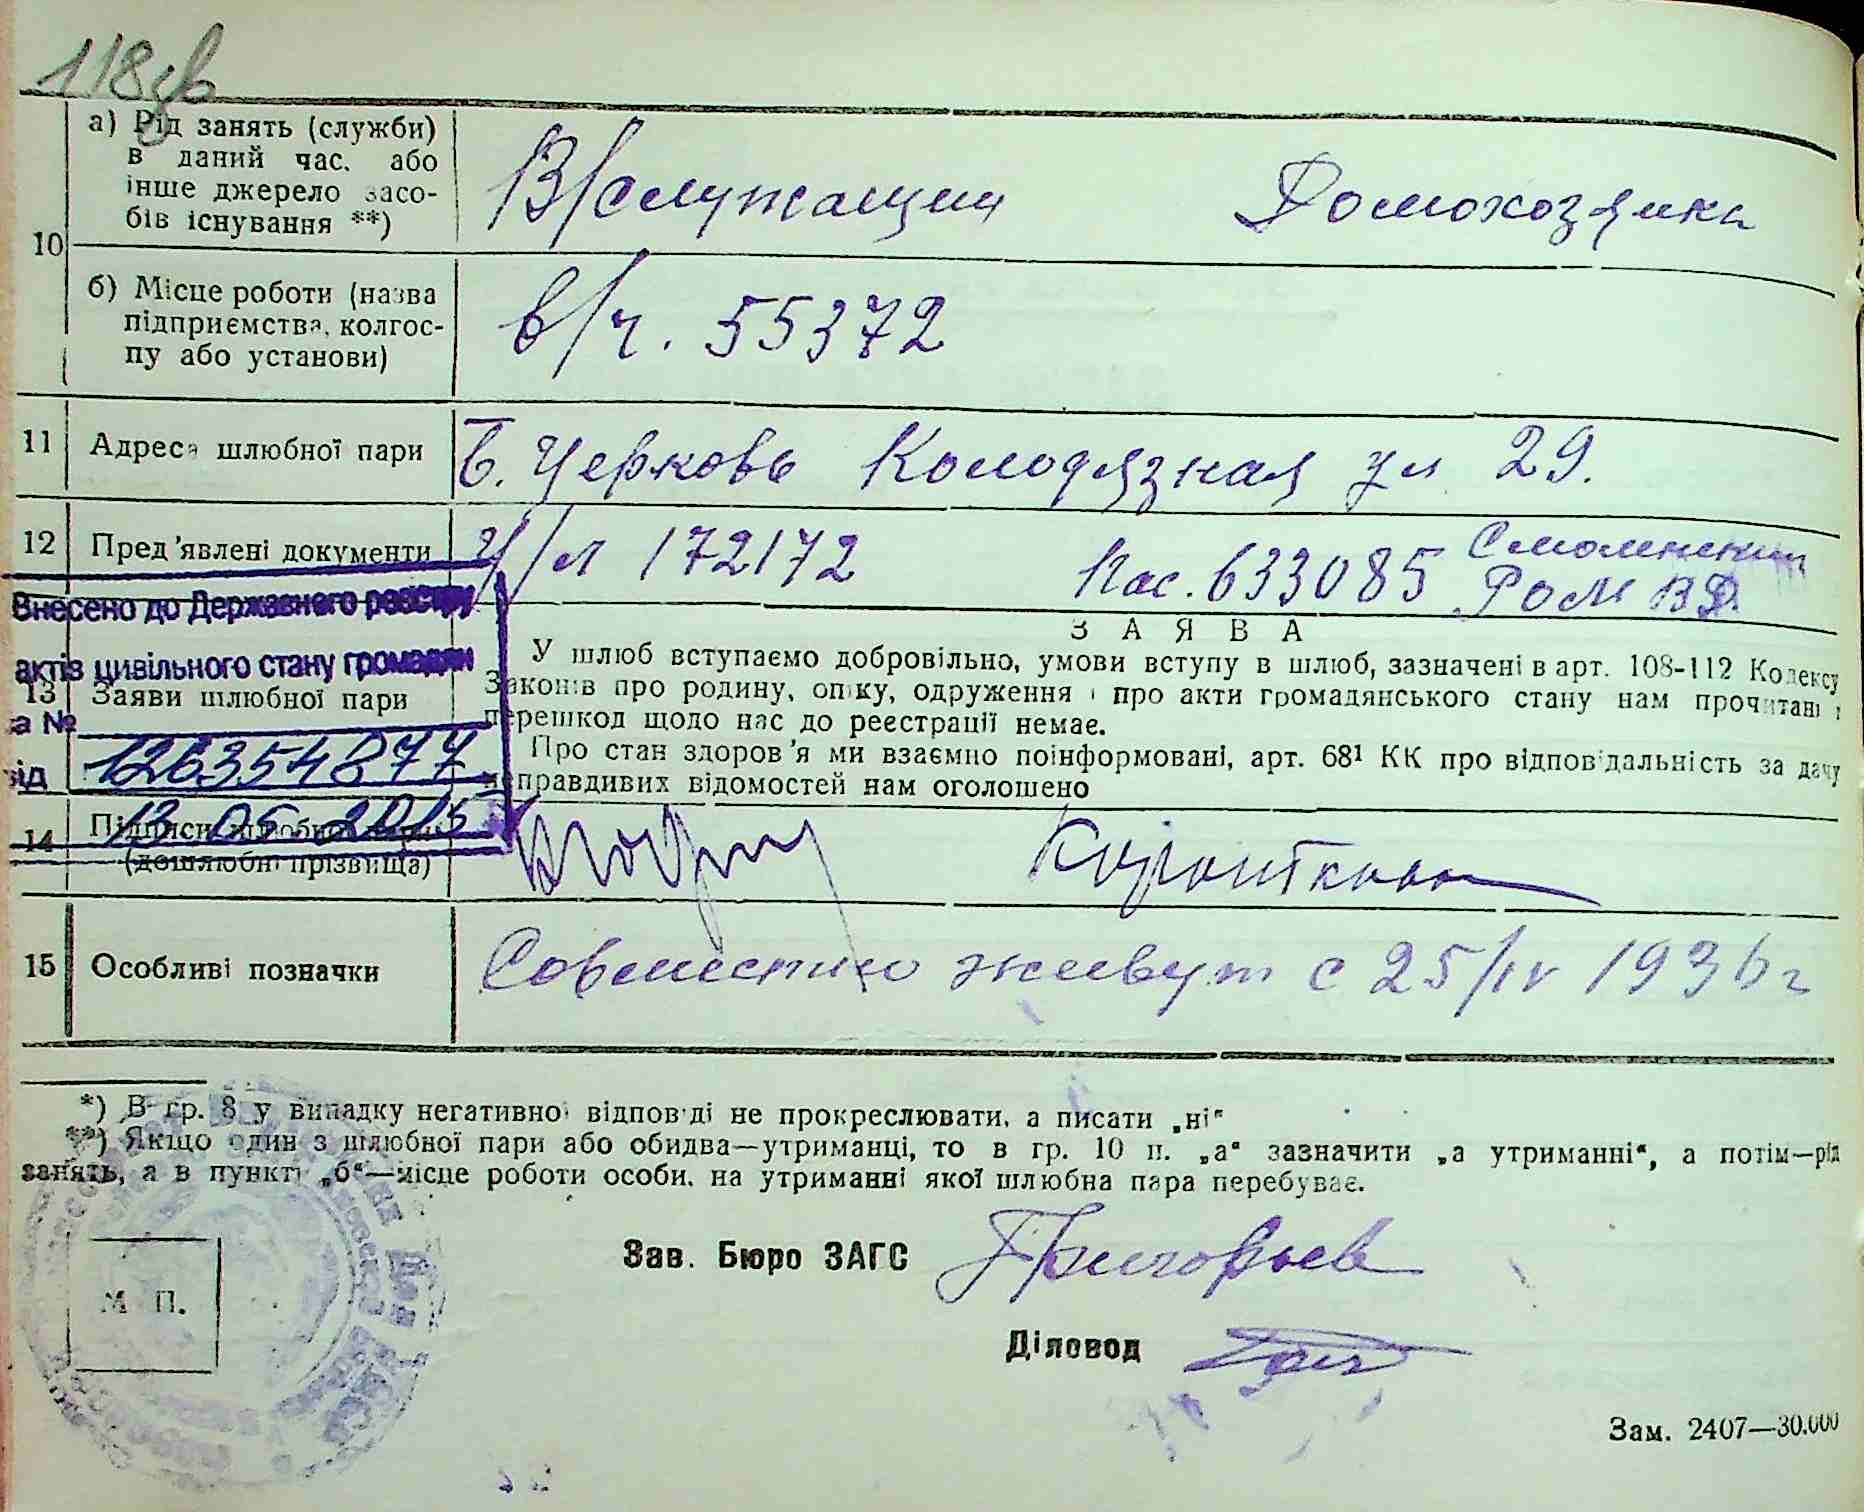 118зв
а) Рід занять (служби)
в даний час. або
інше джерело засо-
бів існування **)
В/служащий Домохозяйка
10
б) Місце роботи (назва
підприємства, колгос-
пу або установи)
в/ч. 55372
11 Адреса шлюбної пари Б. Церковь Колодязная ул 29.
12 Пред'явлені документи У/л 172172 Пас. 633085 Смоленским
РОМ ВД
Внесено до Державного реєстру
актів цивільного стану громадян
за №
126354877
від 13 05 2015
13 Заяви шлюбної пари
ЗАЯВА
У шлюб вступаємо добровільно, умови вступу в шлюб, зазначені в арт. 108-112 Кодексу
Законів про родину, опіку, одруження і про акти громадянського стану нам прочитані і
перешкод щодо нас до реєстрації немає.
Про стан здоров'я ми взаємно поінформовані, арт. 68¹ КК про відповідальність за дачу
неправдивих відомостей нам оголошено
14 Підписи шлюбної пари
(дошлюбні прізвища)
15 Особливі позначки Совместно живут с 25/IV 1936 г
*) В гр. 8 у випадку негативної відповіді не прокреслювати, а писати „ні"
**) Якщо один з шлюбної пари або обидва—утриманці, то в гр. 10 п. „а" зазначити „а утриманні", а потім—рід
занять, а в пункті „б"—місце роботи особи, на утриманні якої шлюбна пара перебуває.
Зав. Бюро ЗАГС Григорьев
М П.
Діловод
Зам. 2407—30.000